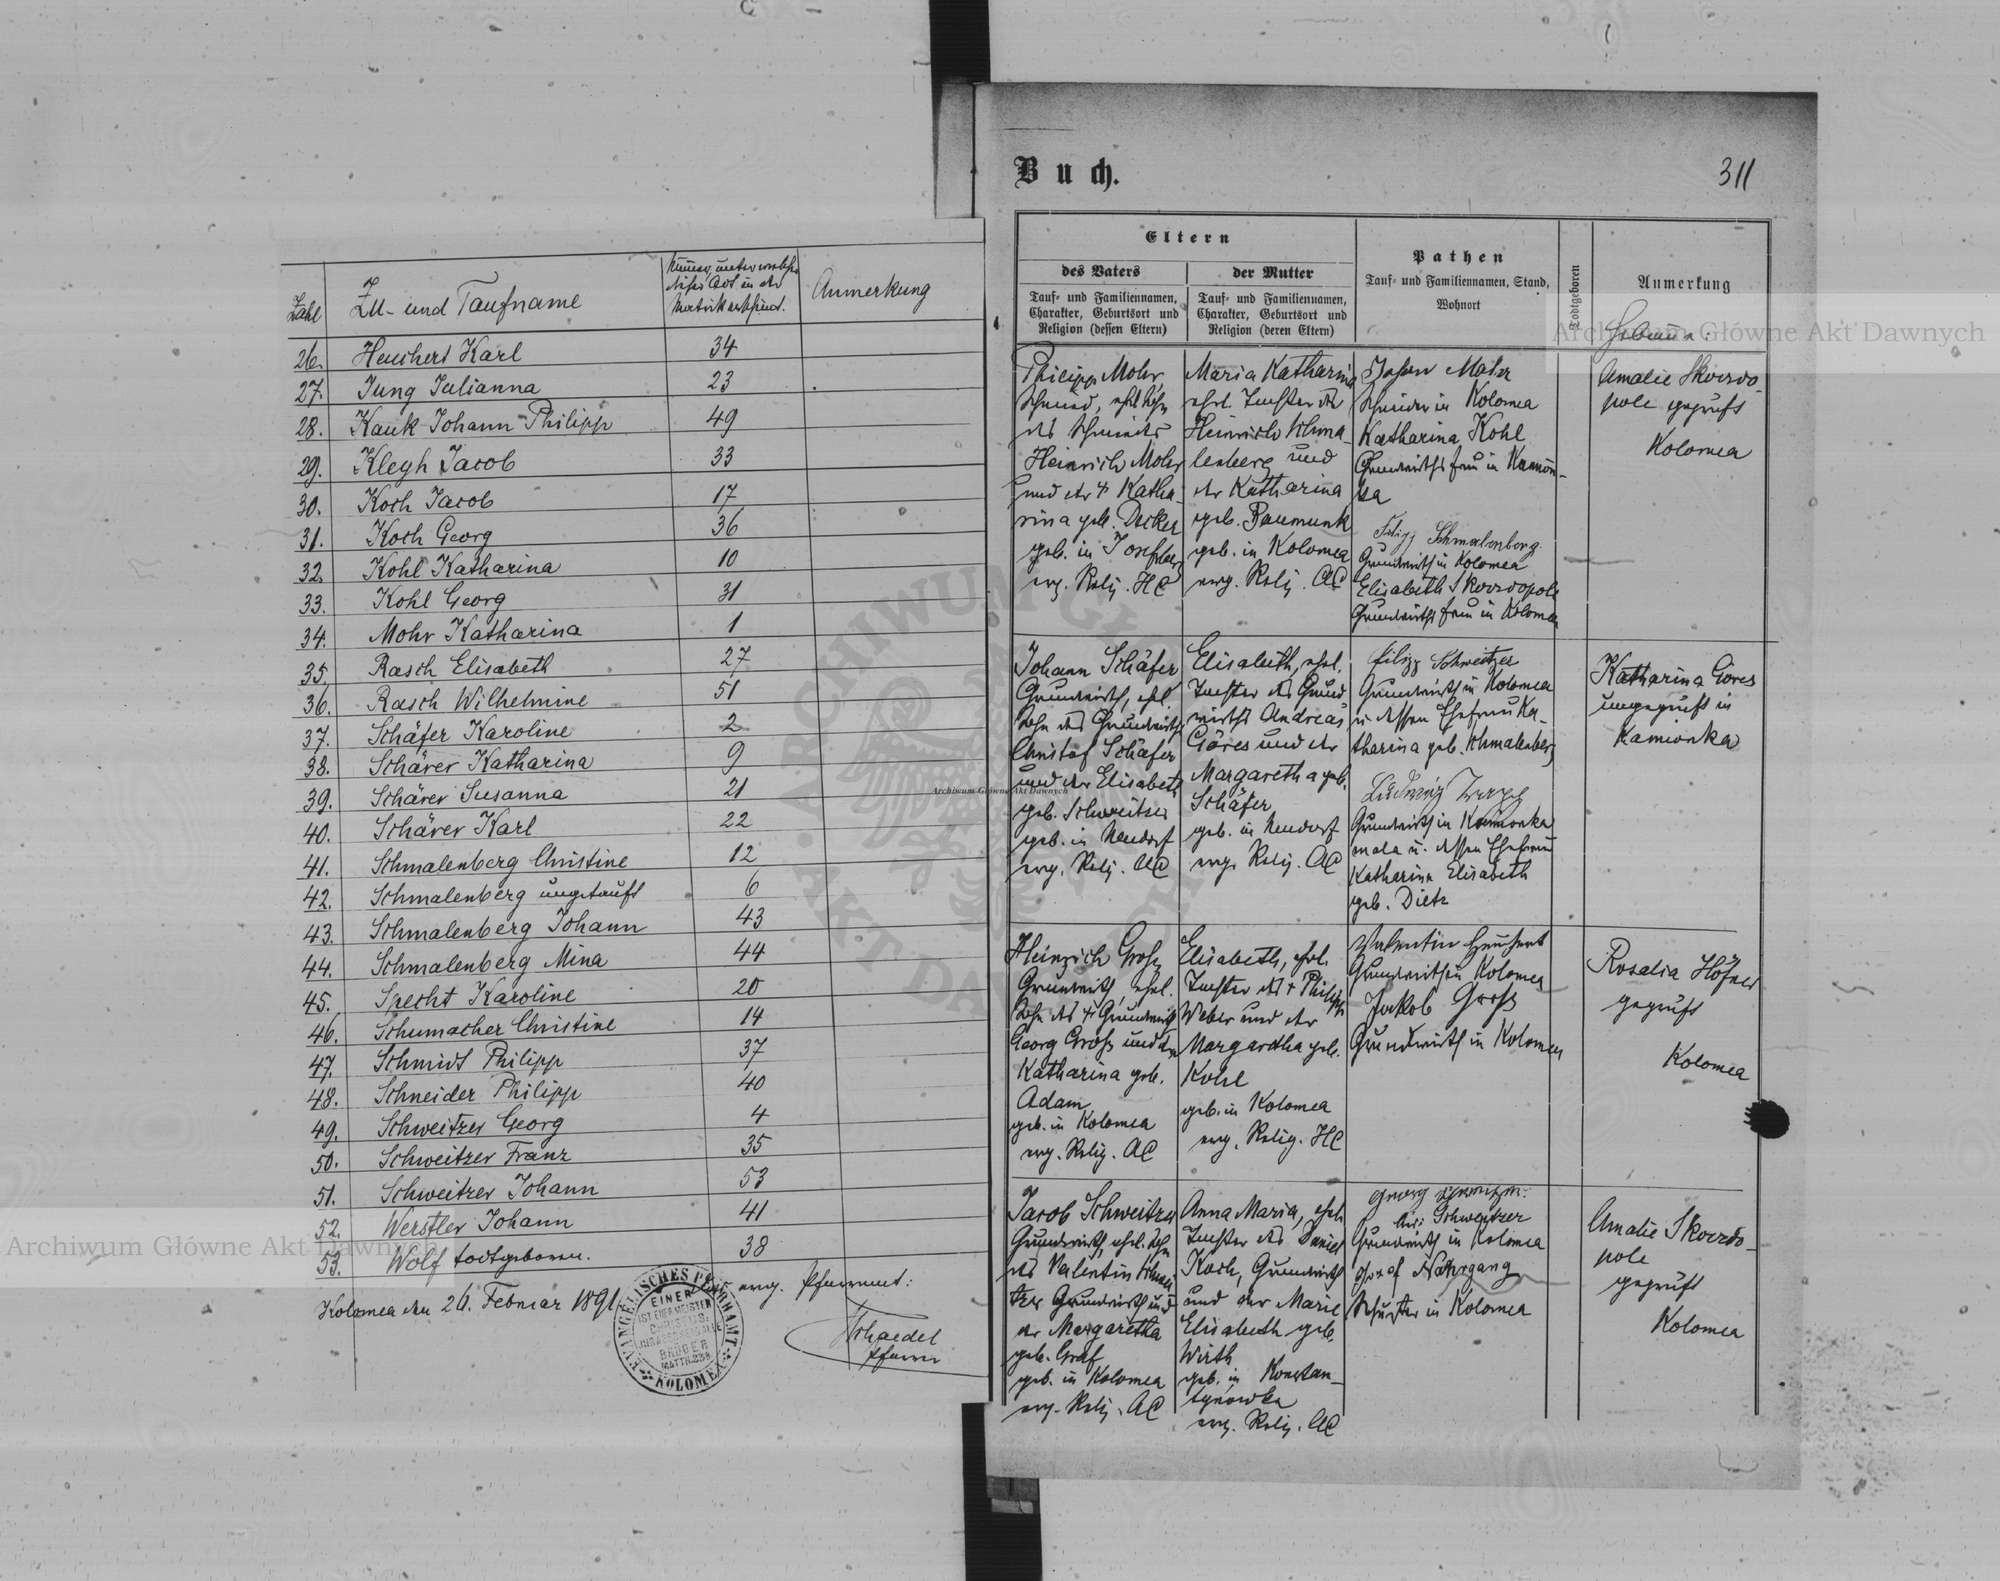 Zahl
Zu- und Taufname
Anmerkung
26. Heuchert Karl 34
27. Jung Julianna 23
28. Kauk Johann Philipp 49
29. Klegh Jacob 33
30. Koch Jacob 17
31. Koch Georg 36
32. Kohl Katharina 10
33. Kohl Georg 31
34. Mohr Katharina 1
35. Rasch Elisabeth 27
36. Rasch Wilhelmine 51
37. Schäfer Karoline 2
38. Schärer Katharina 9
39. Schärer Susanna 21
40. Schärer Karl 22
41. Schmalenberg Christine 12
42. Schmalenberg ungetauft 6
43. Schmalenberg Johann 43
44. Schmalenberg Mina 44
45. Specht Karoline 20
46. Schumacher Christine 14
47. Schmidt Philipp 37
48. Schneider Philipp 40
49. Schweitzer Georg 4
50. Schweitzer Franz 35
51. Schweitzer Johann 53
52. Werstler Johann 41
53. Wolf todtgeboren. 38
Kolomea den 26. Februar 1891
evang. Pfarramt:
Schaedel
Pfarrer
EVANGELISCHES PFARRAMT
KOLOMEA
EINER
IST EUER MEISTER
CHRISTUS
IHR ABER SEID ALLE
BRÜDER
MATTH. 23,8
Buch.
311
Eltern
des Vaters
der Mutter
Tauf- und Familiennamen,
Charakter, Geburtsort und
Religion (dessen Eltern)
Tauf- und Familiennamen,
Charakter, Geburtsort und
Religion (deren Eltern)
Pathen
Tauf- und Familiennamen, Stand,
Wohnort
Todtgeboren
Anmerkung
Philipp Mohr,
Schmied, ehl. Sohn
des Schmieds
Heinrich Mohr
und der † Katha-
rina geb. Decker
geb. in Josefsberg
evg. Relig. HC
Maria Katharina
ehel. Tochter des
Heinrich Schma-
lenberg und
der Katharina
geb. Baumunk
geb. in Kolomea
evg. Relig. AC
Johann Maler
Schneider in Kolomea
Katharina Kohl
Grundwirths frau in Kamion-
ka
Filipp Schmalenberg
Grundwirth in Kolomea
Elisabeth Skorodopole
Grundwirths frau in Kolomea
Amalie Skorodo-
pole geprüft
Kolomea
Johann Schäfer
Grundwirth, ehl.
Sohn des Grundwirths
Christof Schäfer
und der Elisabeth
geb. Schweitzer
geb. in Neudorf
evg. Relig. AC
Elisabeth, ehel.
Tochter des Grund
wirths Andreas
Göres und der
Margaretha geb.
Schäfer
geb. in Neudorf
evg. Relig. AC
Filipp Schweitzer
Grundwirth in Kolomea
u dessen Ehefrau Ka-
tharina geb. Schmalenberg
Ludwig
Grundwirth in Kamionka
mala u. dessen Ehefrau
Katharina Elisabeth
geb. Dietz
Katharina Göres
ungeprüft in
Kamionka
Heinrich Groß
Grundwirth, ehel.
Sohn des † Grundwirth
Georg Groß und der
Katharina geb.
Adam
geb. in Kolomea
evg. Relig. AC
Elisabeth, ehel.
Tochter des † Philipp
Weber und der
Margaretha geb.
Kohl
geb. in Kolomea
evg. Relig. HC
Valentin Heuchert
Grundwirth in Kolomea
Jakob Groß
Grundwirth in Kolomea
Rosalia Höfner
geprüft
Kolomea
Jacob Schweitzer
Grundwirth, ehel. Sohn
des Valentin Schwei-
tzer Grundwirth und
der Margaretha
geb. Graf
geb. in Kolomea
evg. Relig. AC
Anna Maria, ehel.
Tochter des Daniel
Koch, Grundwirth
und der Marie
Elisabeth geb.
Wirth
geb. in Konstan-
tynowka
evg. Relig. AC
Georg Schweitzer
Schweitzer
Grundwirth in Kolomea
Josef Nahrgang
Schuster in Kolomea
Amalie Skorodo-
pole
geprüft
Kolomea
Archiwum Główne Akt Dawnych
Archiwum Główne Akt Dawnych
Archiwum Główne Akt Dawnych